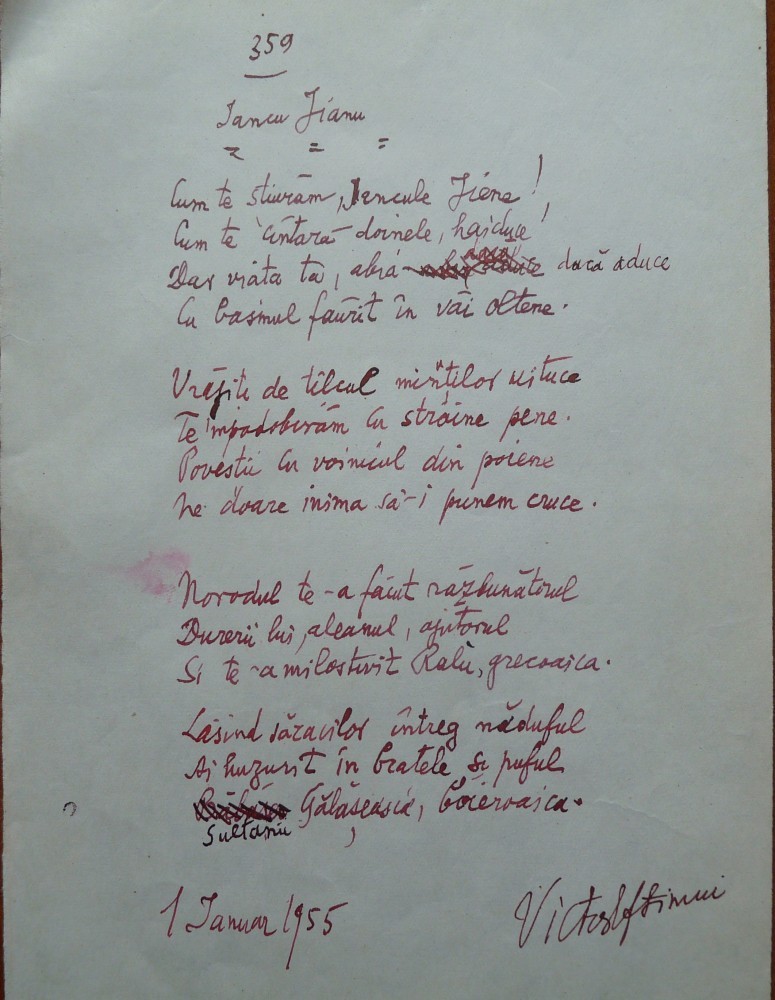 359
Iancu Jianu
Cum te știurăm, Iencule Jiene!
Cum te cîntară doinele, haiduce!
Dar viața ta, abia dacă aduce
Cu basmul făurit în văi oltene.
Vrăjiți de tîlcul minților uituce
Te împodobirăm cu străine pene.
Povestii cu voinicul din poiene
Ne doare inima să-i punem cruce.
Norodul te-a făcut răzbunătorul
Durerii lui, aleanul, ajutorul
Si te-a milostivit Ralù, grecoaica.
Lăsind săracilor întreg năduful
Ai huzurit în bratele și puful
Sultanii Gălășeasca, boieroaica.
1 Ianuar 1955
Victor Eftimiu